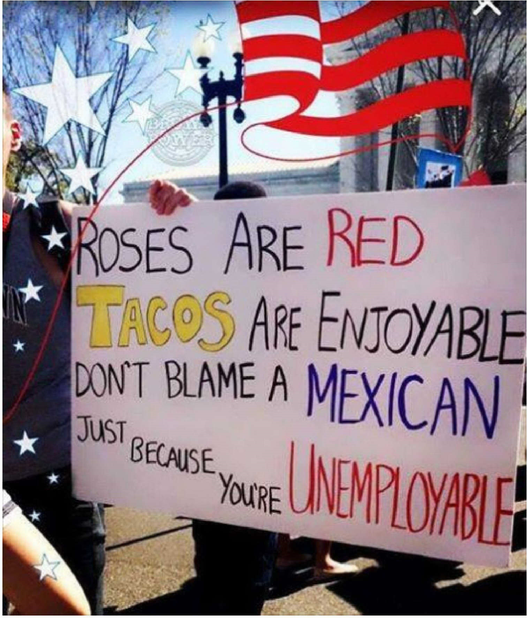 ROSES ARE RED
TACOS ARE ENJOYABLE
DON'T BLAME A MEXICAN
JUST BECAUSE YOU'RE UNEMPLOYABLE